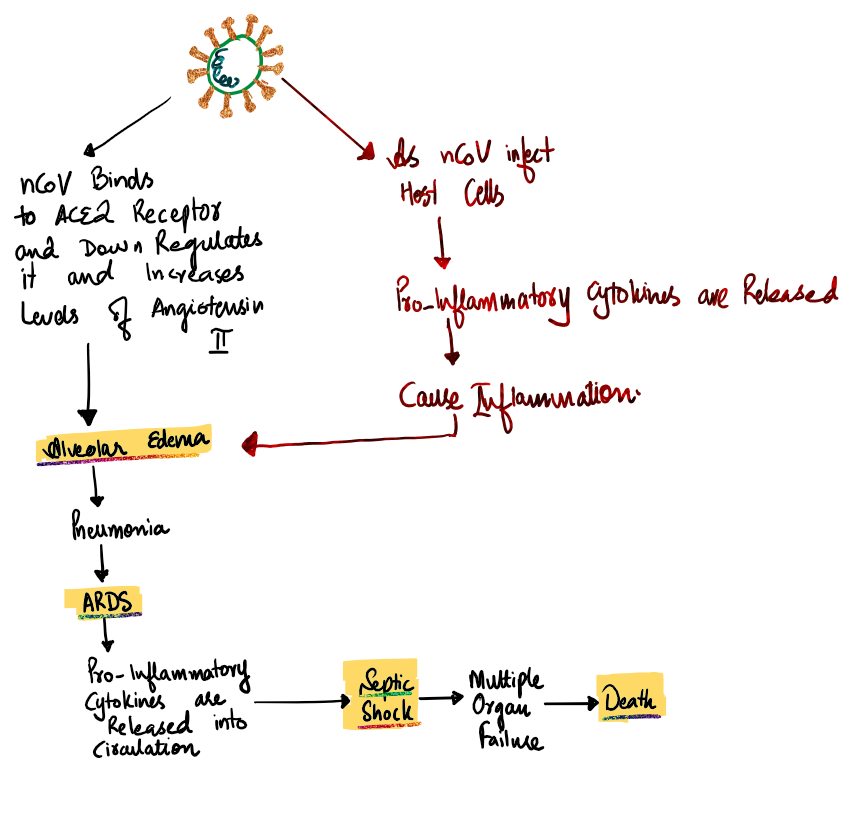 nCoV Binds
to ACE2 Receptor
and Down Regulates
it and Increases
Levels of Angiotensin
II
As nCoV infect
Host Cells
Pro-Inflammatory Cytokines are Released
Cause Inflammation.
Alveolar Edema
Pneumonia
ARDS
Pro-Inflammatory
Cytokines are
Released into
Circulation
Septic
Shock
Multiple
Organ
Failure
Death